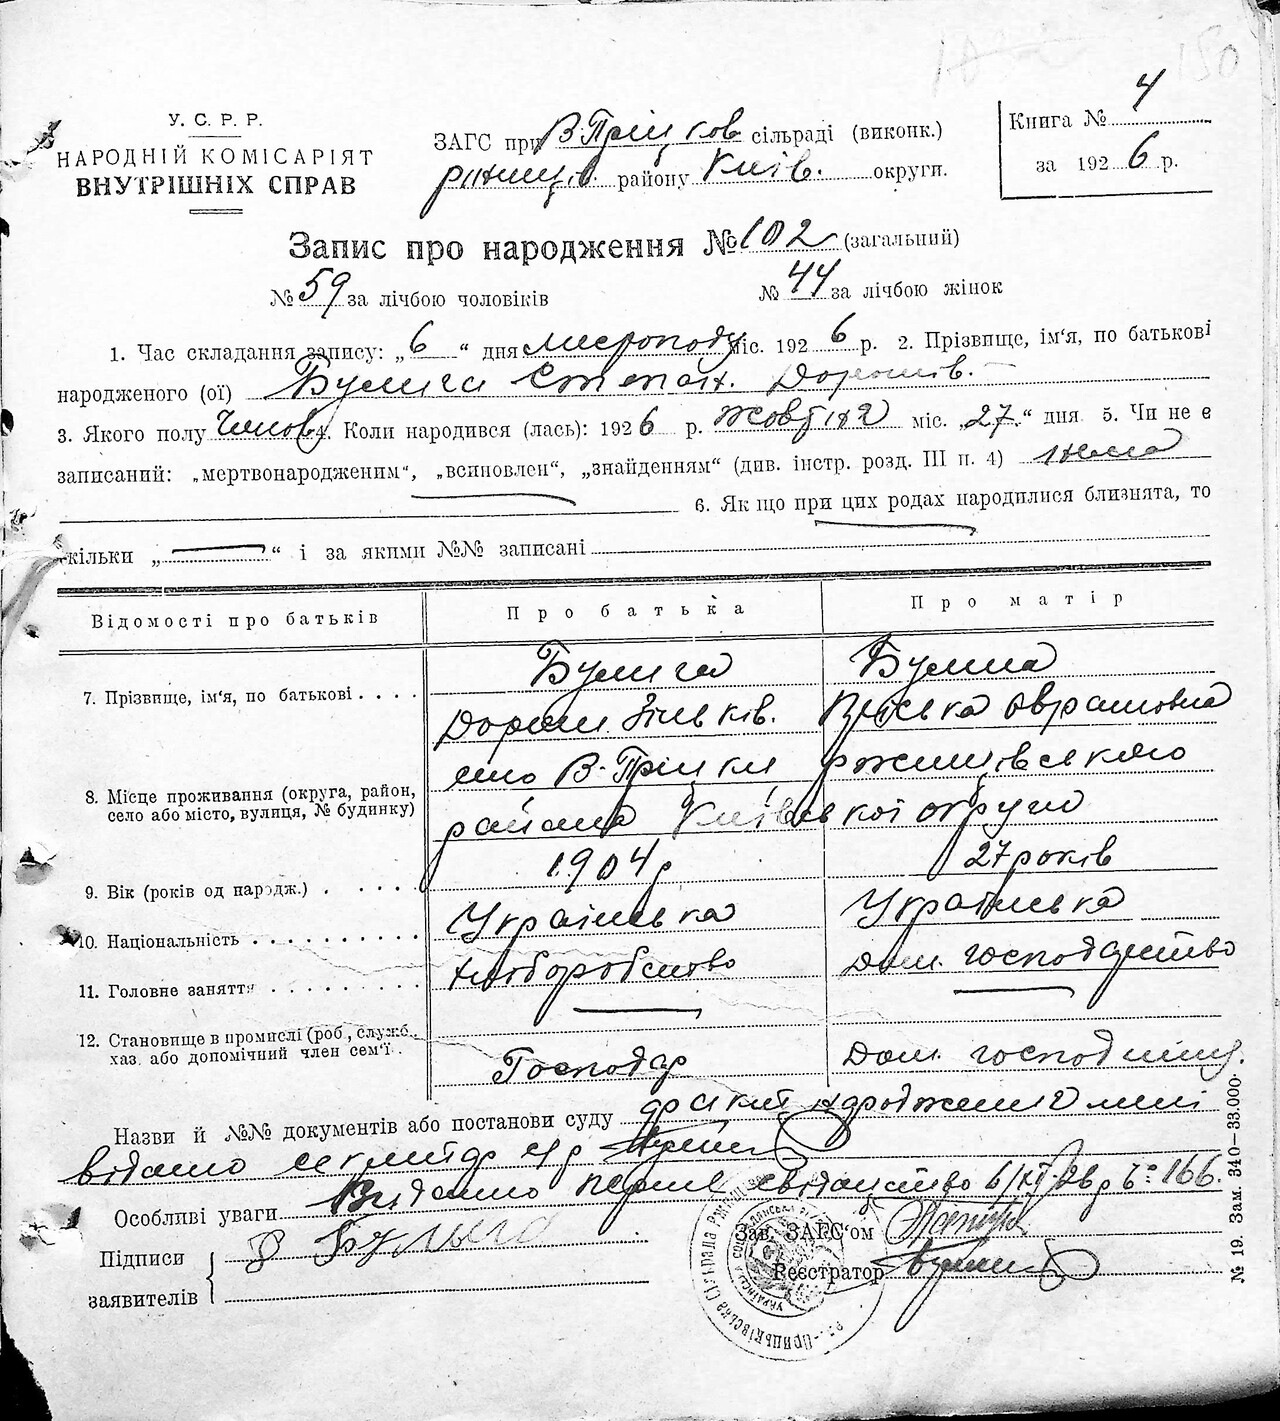 У. С. Р. Р.
НАРОДНІЙ КОМІСАРІЯТ
ВНУТРІШНІХ СПРАВ
ЗАГС при В-Пріцков сільраді (виконк.)
району Київ. округи.
Книга № 4
за 1926 р.
Запис про народження № 102 (загальний)
№ 59 за лічбою чоловіків № 44 за лічбою жінок
1. Час складання запису: „6“ дня листопаду міс. 1926 р. 2. Прізвище, ім‘я, по батькові
народженого (ої) Булига Степан. Дорошів.
3. Якого полу Чолов 4. Коли народився (лась): 1926 р. жовтня міс. „27.“ дня 5. Чи не є
записаний: „мертвонародженим“, „всиновлен“, „знайденням“ (див. інстр. розд. III п. 4) нема
6. Як що при цих родах народилися близнята, то
скільки „ “ і за якими №№ записані
Відомості про батьків Про батька Про матір
7. Прізвище, ім‘я, по батькові . . . . Булига Булига
Дорош Зіньків. Аврамовна
8. Місце проживання (округа, район, село або місто, вулиця, № будинку) В-Пріцки ржищівського
района Київської округи
9. Вік (років од народж.) . . . . . 1904 р 27 років
10. Національність . . . . . . . . . . Українська Українська
11. Головне заняття . . . . . . . . . хлоборобство Дом. господарство
12. Становище в промислі (роб., служб.,
хаз. або допомічний член сем‘ї . . Господар Дом. господиня.
Назви й №№ документів або постанови суду народження
видано
Особливі уваги Видано перше свідоцтво 6/XI 26 р Ч: 166.
Підписи
заявителів
Булыга
Зав. ЗАГС‘ом
Реєстратор
№ 19. Зам. 340—33.000.